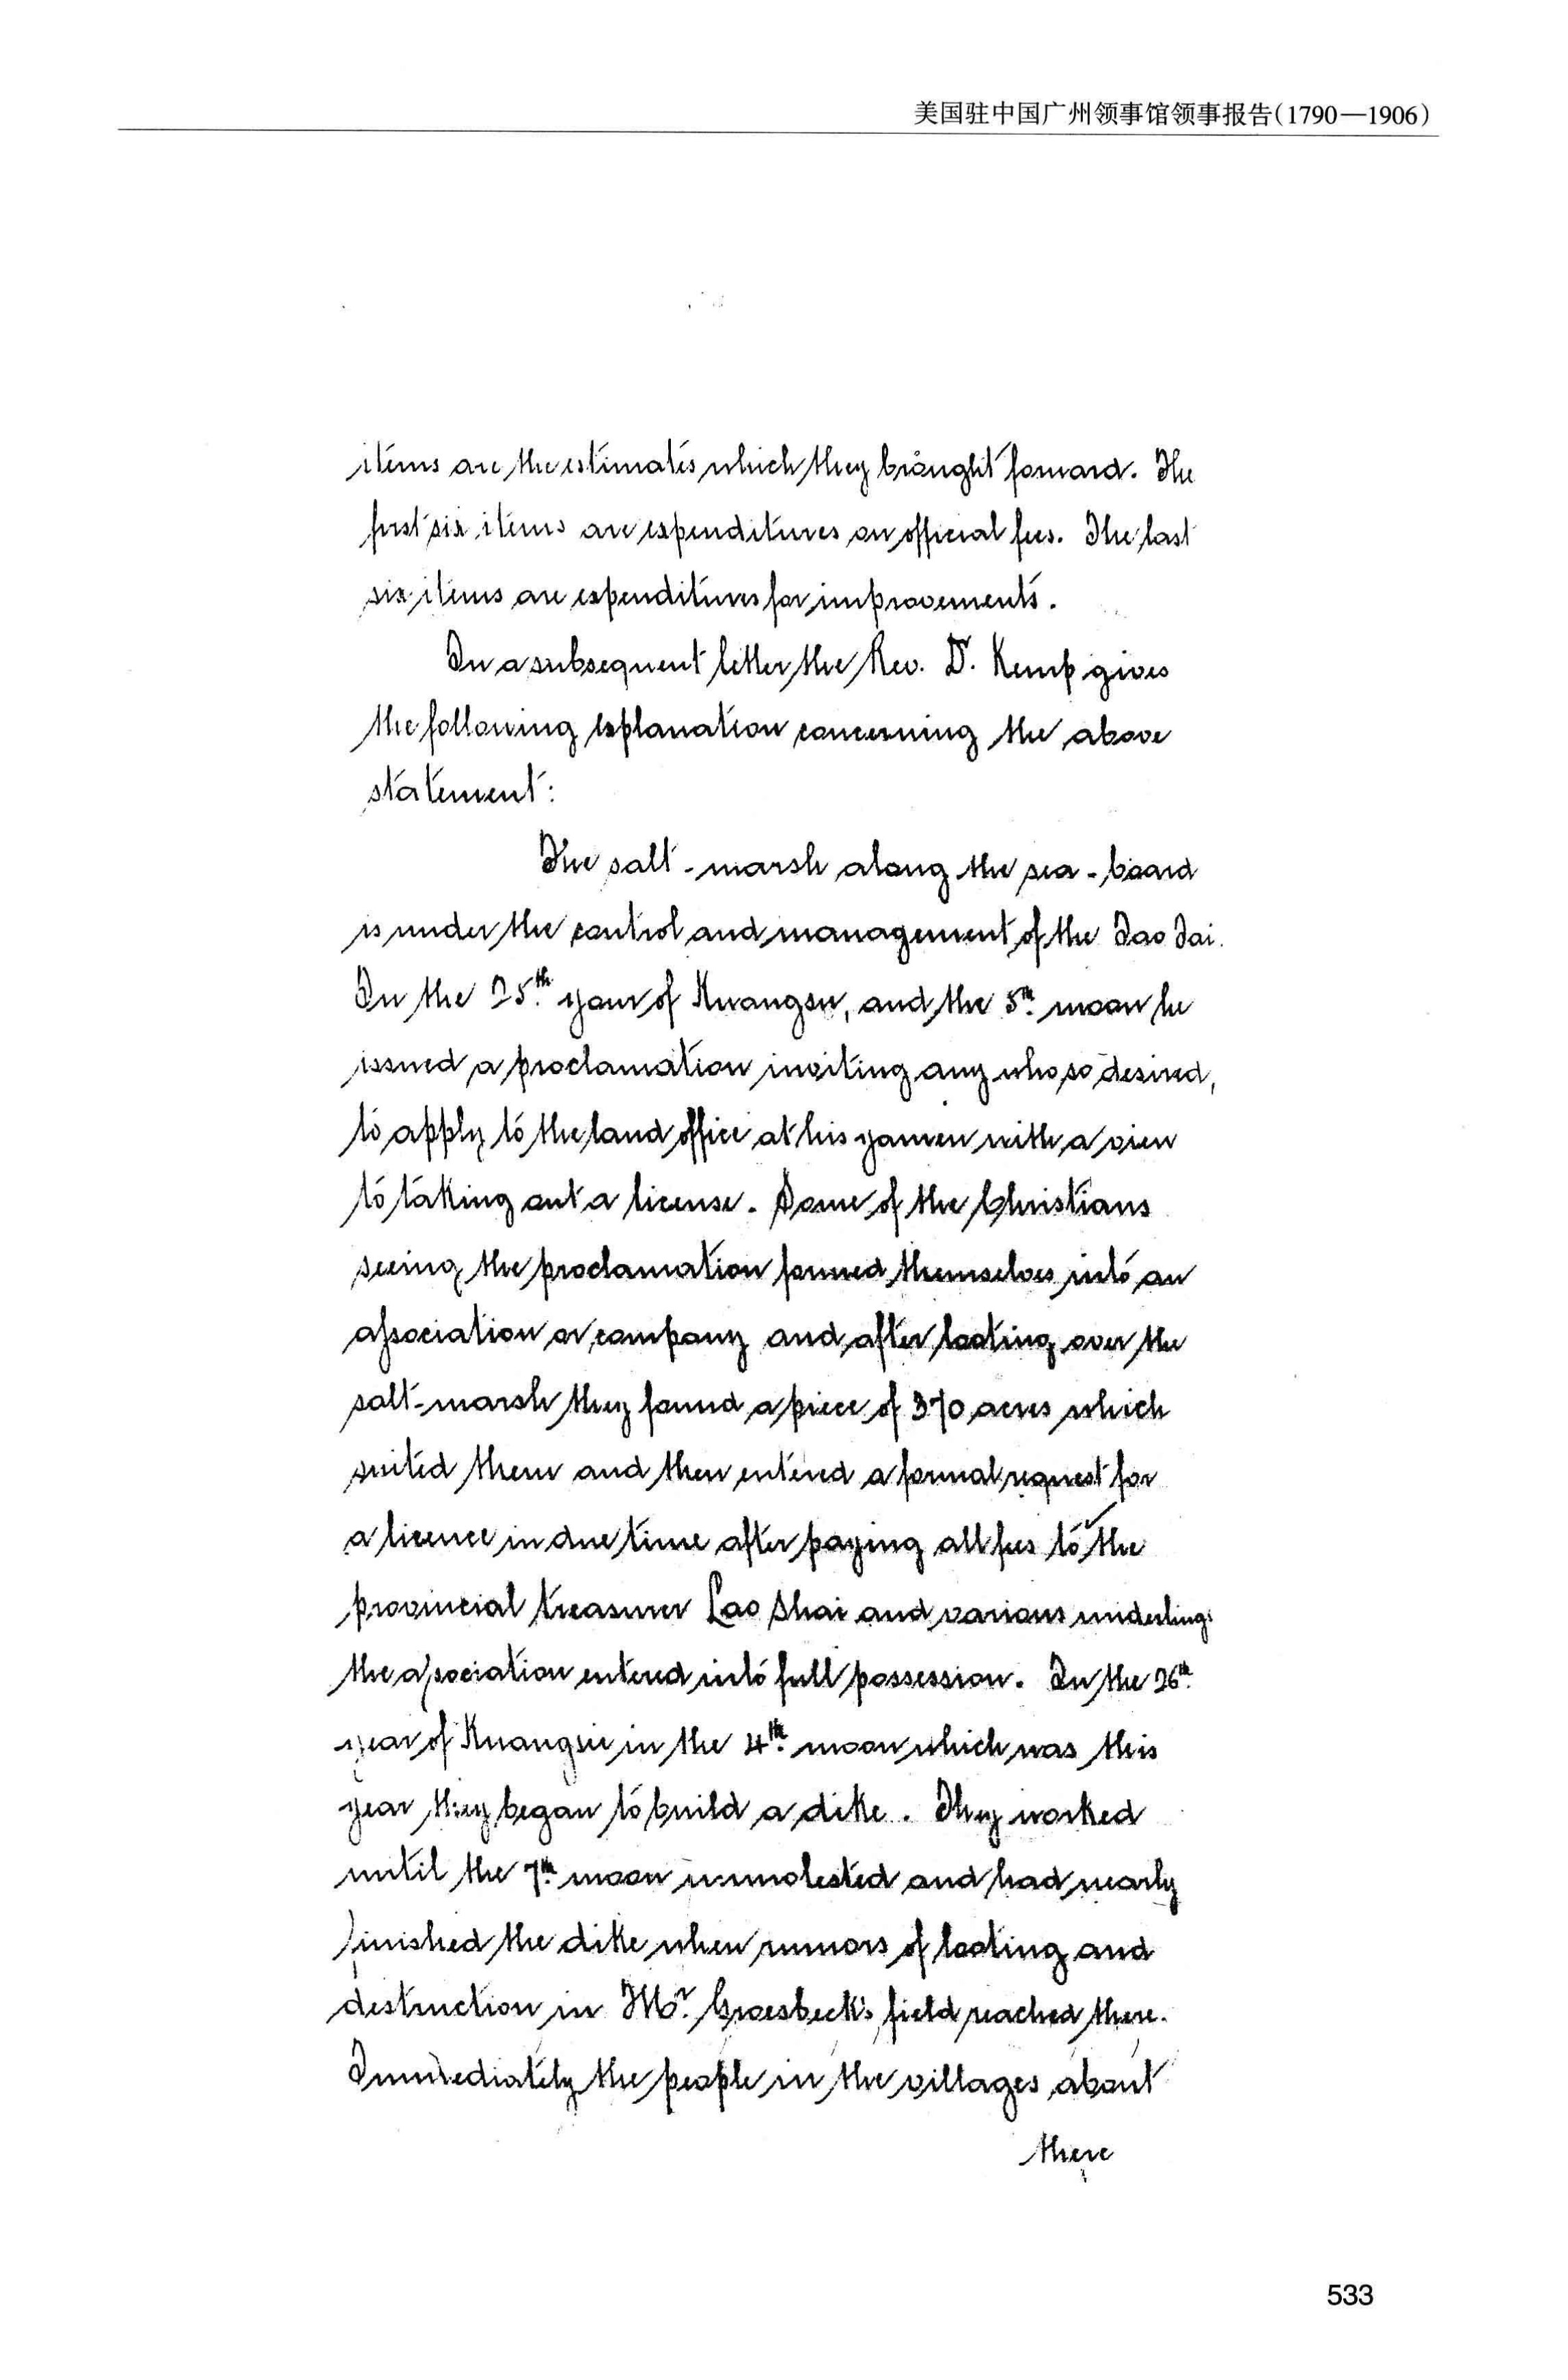 美国驻中国广州领事馆领事报告(1790—1906)
items are the estimates which they brought forward. The
first six items are expenditures on official fees. The last
six items are expenditures for improvements.
In a subsequent letter the Rev. D. Kemp gives
the following explanation concerning the above
statement:
The salt-marsh along the sea-board
is under the control and management of the Tao Tai.
In the 25th. year of Kuangsu, and the 5th. moon he
issued a proclamation inviting any who so desired,
to apply to the land office at his yamen with a view
to taking out a license. Some of the Christians
seeing the proclamation formed themselves into an
association or company and after looking over the
salt-marsh they found a piece of 370 acres which
suited them and then entered a formal request for
a licence in due time after paying all fees to the
provincial treasurer Lao Shai and various underlings
the association entered into full possession. In the 26th.
year of Kuangsu in the 4th. moon which was this
year they began to build a dike. They worked
until the 7th. moon unmolested and had nearly
finished the dike when rumors of looting and
destruction in Mr. Groesbeck's field reached there.
Immediately the people in the villages about
there
533